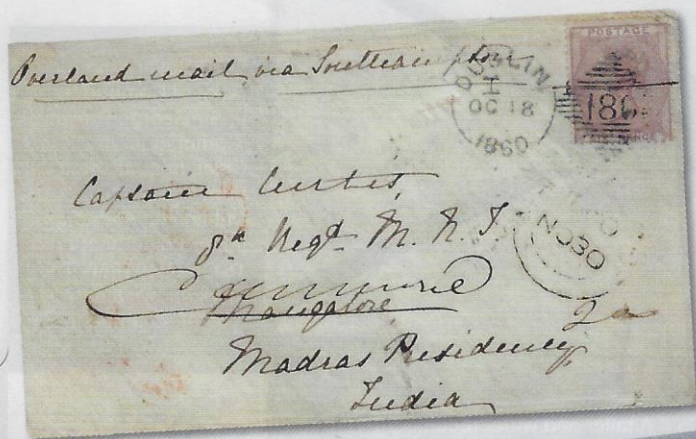 Overland mail via Southampton
POSTAGE
DUBLIN
I
OC 18
1860
186
Captain Curtis,
8th Regt. M. N. I
Cannanore
Mangalore
NO 30
2a
Madras Presidency
India